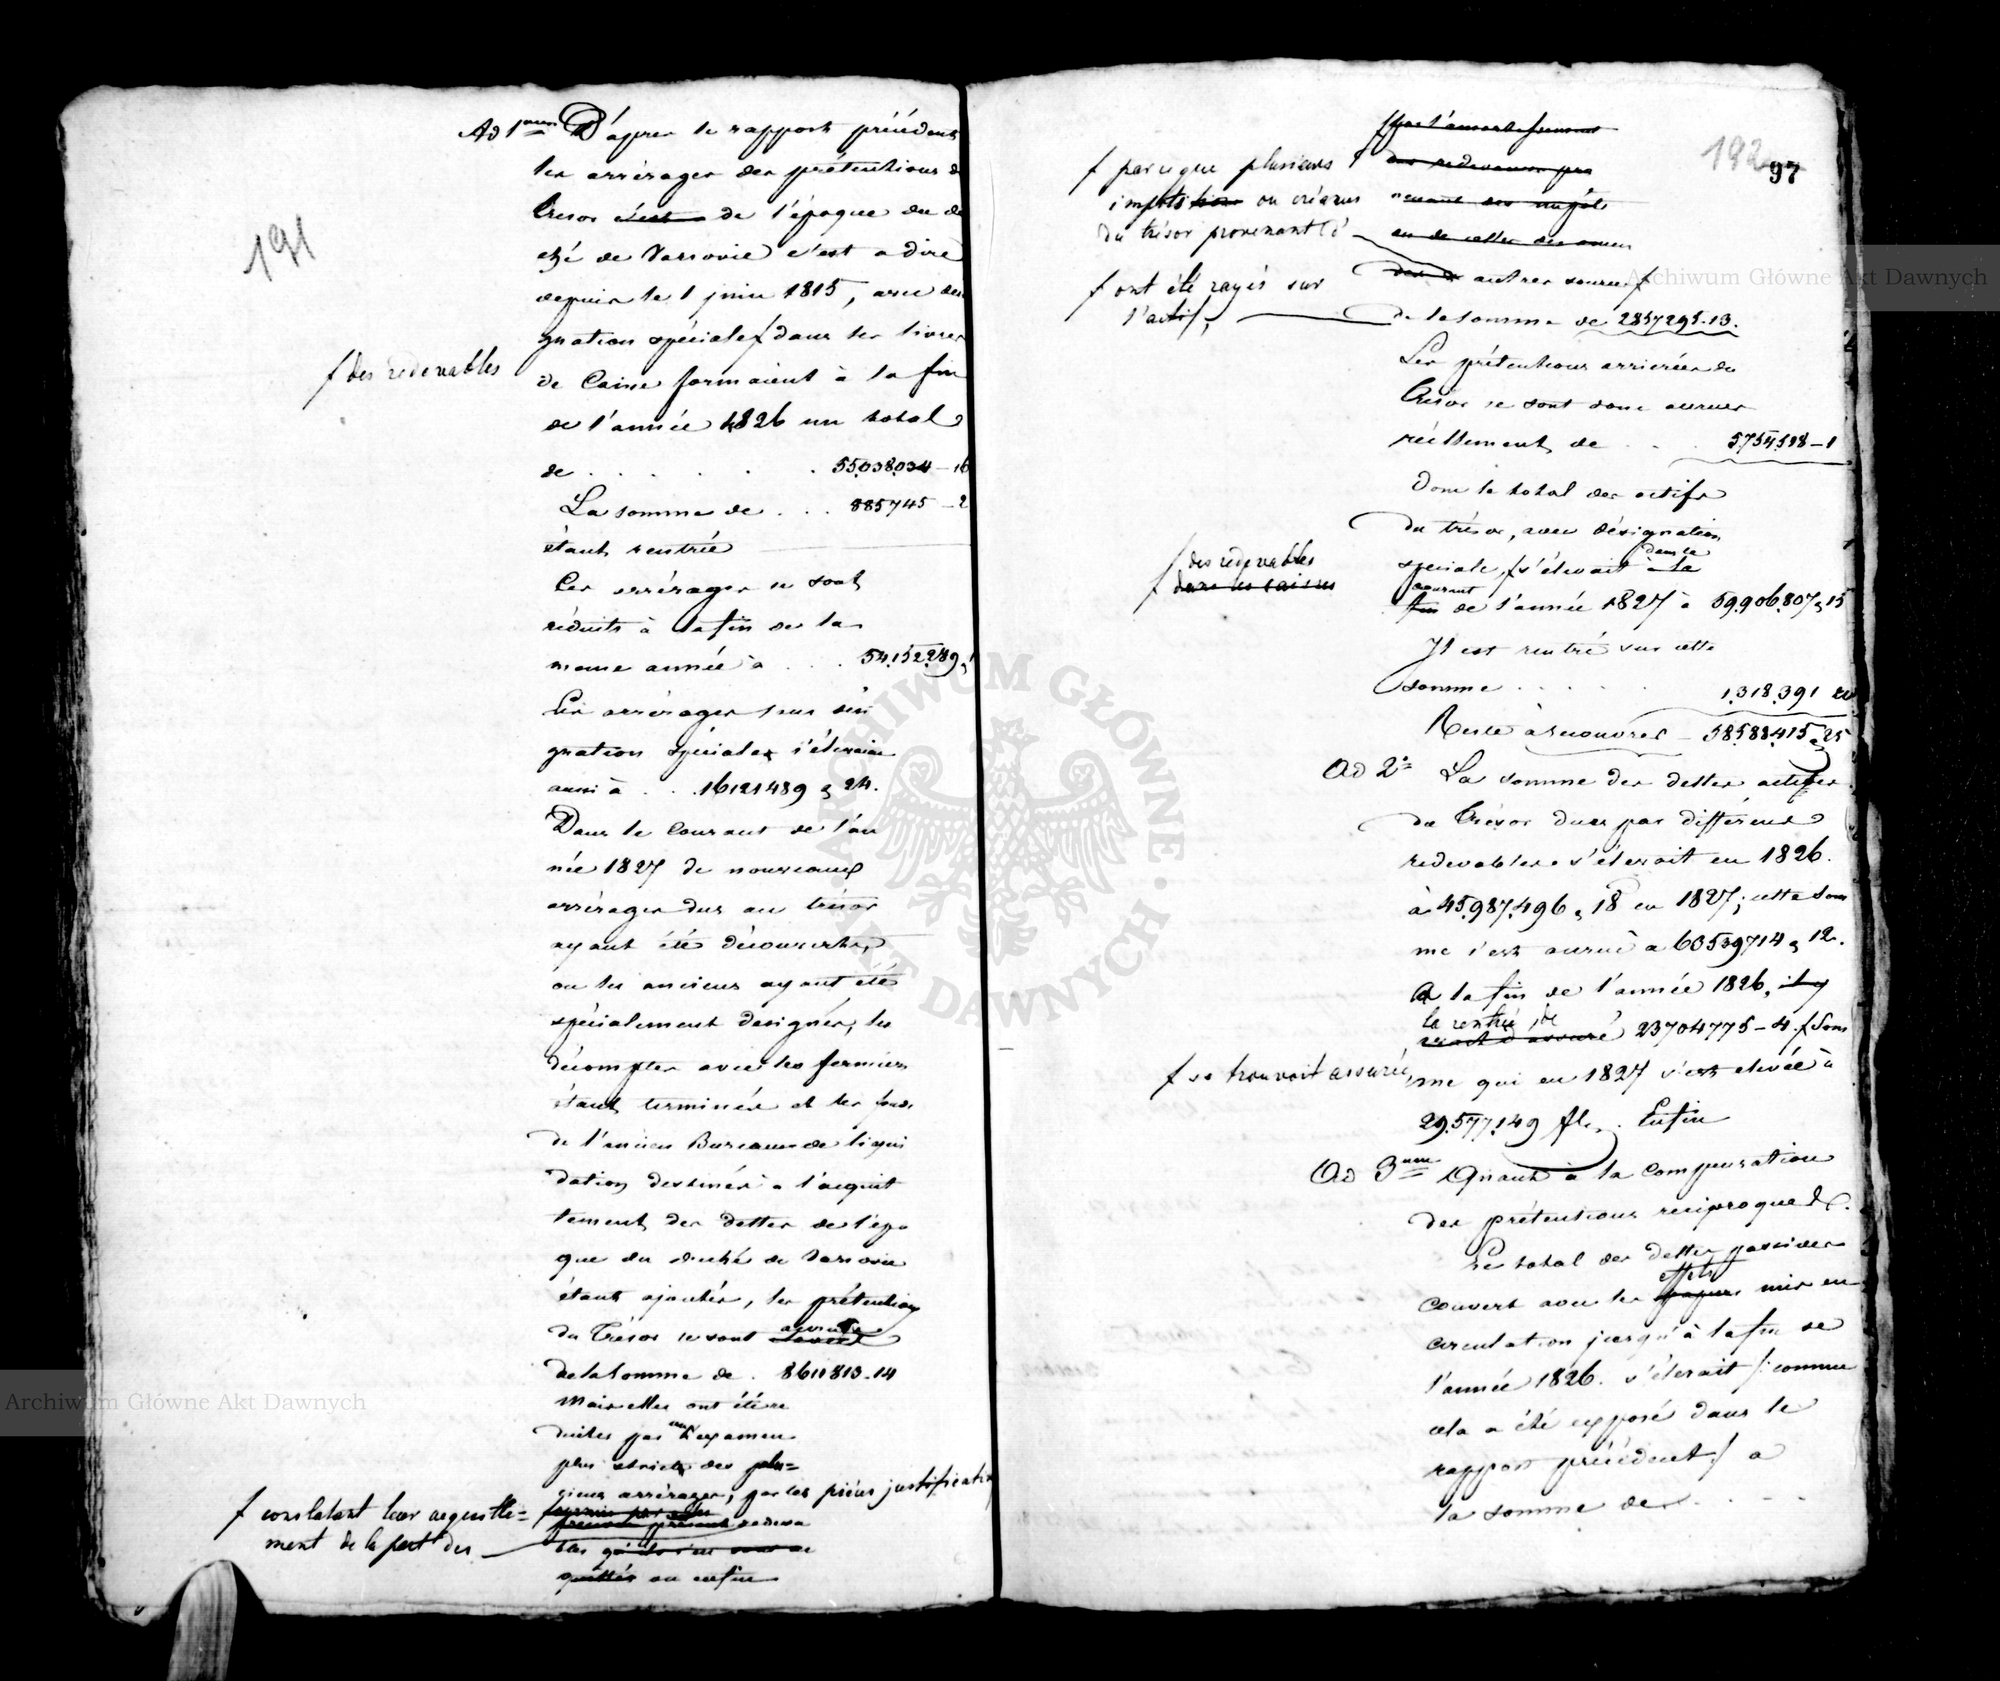 191
Ad 1mum D'apres le rapport précédent
les arrérages des prétentions du
Tresor c'est de l'époque du du
ché de Varsovie c'est a dire
depuis le 1 juin 1815, avec desi
gnation spéciale f dans les livres
f des redevables
de Caisse formaient à la fin
de l'année 1826 un total
de . . . . . . 55.038.034 – 16
La somme de . . . 885745 – 2
étant rentrée
Ces arrérages se sont
réduits à la fin de la
meme année à . . . 54.152.289,
Les arrérages sans dési
gnation spéciale s'élevaient
aussi à . . . 16121489 „ 24.
Dans le Courant de l'an
née 1827 de nouveaux
arrérages dus au trésor
ayant été découverts,
ou les anciens ayant été
spécialement designés, les
décomptes avec les fermiers
étant terminés et les fonds
de l'ancien Bureau de liqui
dation destinés à l'acquit
tement des dettes de l'épo
que du duché de Varsovie
étant ajoutés, les prétentions
du Trésor se sont accrues
de la Somme de . 8611813-14
Mais elles ont été re
duites par un examen
plus strict des plu=
sieurs arrérages, par les pièces justificati
f constatant leur acquitte=
ment de la part des
redeva
bles qu'ils s'en sont ac
quittés ou enfin
192
97
f par l'amortissement
des redevances pro
venant des impôts
ou de celles des
f parceque plusieurs
impôts ou créances
du trésor provenant d'
autres sources f
f ont été rayés sur
l'actif,
de la somme de 2857295.13.
Les prétentions arrierées du
Trésor se sont donc accrues
réellement de . . . 5754518 – 1
Donc le total des actifs
du trésor, avec désignation
f des redevables
f dans les caisses
speciale, f s'élevait à la dans le
courant
fin de l'année 1827 à 59.906.807 „ 15
Il est rentré sur cette
somme . . . . . 1.318.391
Reste à recouvrer – 58.588.415 „ 25
Ad 2° La somme des dettes actives
du Trésor dues par différens
redevables s'élevait en 1826.
à 45.987.496 „ 18 en 1827; cette som
me s'est accrue à 60539714 „ 12.
A la fin de l'année 1826, il y
la rentrée de
avait d'assuré 23704775 – 4. f Som
f se trouvait assurée,
me qui en 1827 s'est elevée à
29.577.149 fl. . Enfin
Ad 3um Quant à la compensation
des prétentions reciproques &c.
Le total des dettes passives
effets
couvert avec les papiers mis en
circulation jusqu'à la fin de
l'année 1826. s'élevait /: comme
cela a été exposé dans le
rapport précédent :/ a
la somme de . . . .
Archiwum Główne Akt Dawnych
Archiwum Główne Akt Dawnych
ARCHIWUM GŁÓWNE · AKT DAWNYCH ·